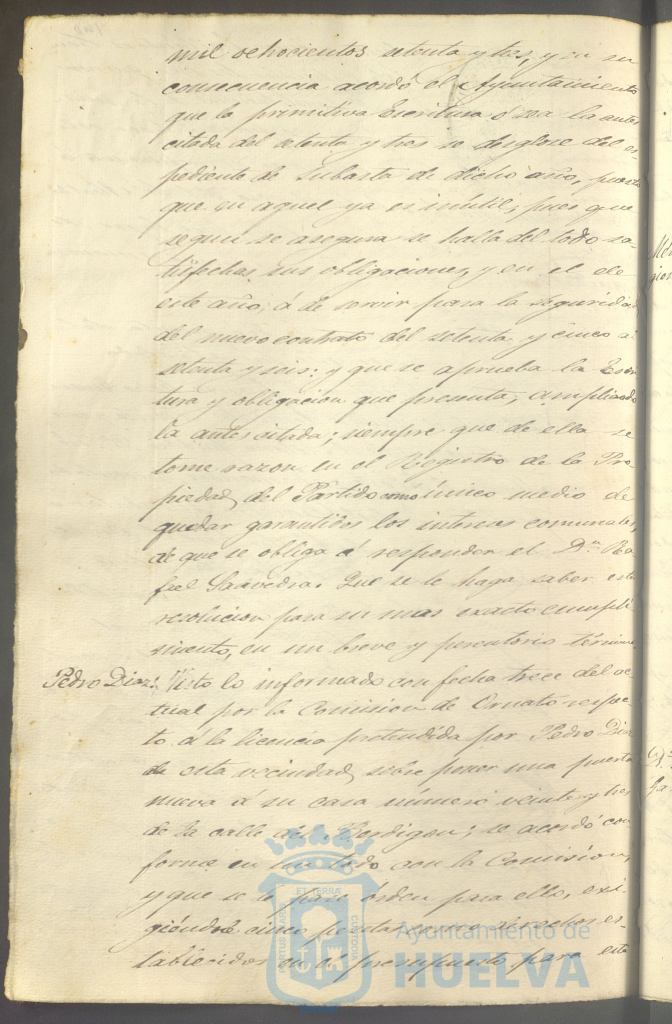 mil ochocientos setenta y tres, y en su
consecuencia acordó el Ayuntamiento
que la primitiva Escritura ó sea la antes
citada del setenta y tres se desglose del es-
pediente de subasta de dicho año, puesto
que en aquel ya es inútil, pues que
segun se asegura se halla del todo sa-
tisfechas sus obligaciones, y en el de
este año, á de servir para la seguridad
del nuevo contrato del setenta y cinco á
setenta y seis: y que se aprueba la Escri-
tura y obligacion que presenta, ampliando
la antes citada; siempre que de ella se
tome razon en el Registro de la Pro-
piedad del Partido como único medio de
quedar garantidos los intereses comunales,
de que se obliga á responder el Dn. Ra-
fael Saavedra. Que se le haga saber esta
resolucion para su mas exacto cumpli-
miento, en un breve y perentorio término.
Pedro Diaz: Visto lo informado con fecha trece del ac-
tual por la Comision de Ornato respec-
to á la licencia pretendida por Pedro Diaz
de esta vecindad, sobre poner una puerta
nueva á su casa número veinte y tres
de la calle del Berdigon; se acordó con-
forme en un todo con la Comision,
y que se le pase órden para ello, exi-
giéndole cinco pesetas como derechos es-
tablecidos en el presupuesto para este
ET TERRAE
CUSTODIA
PORTUS MARIS
Ayuntamiento de
HUELVA